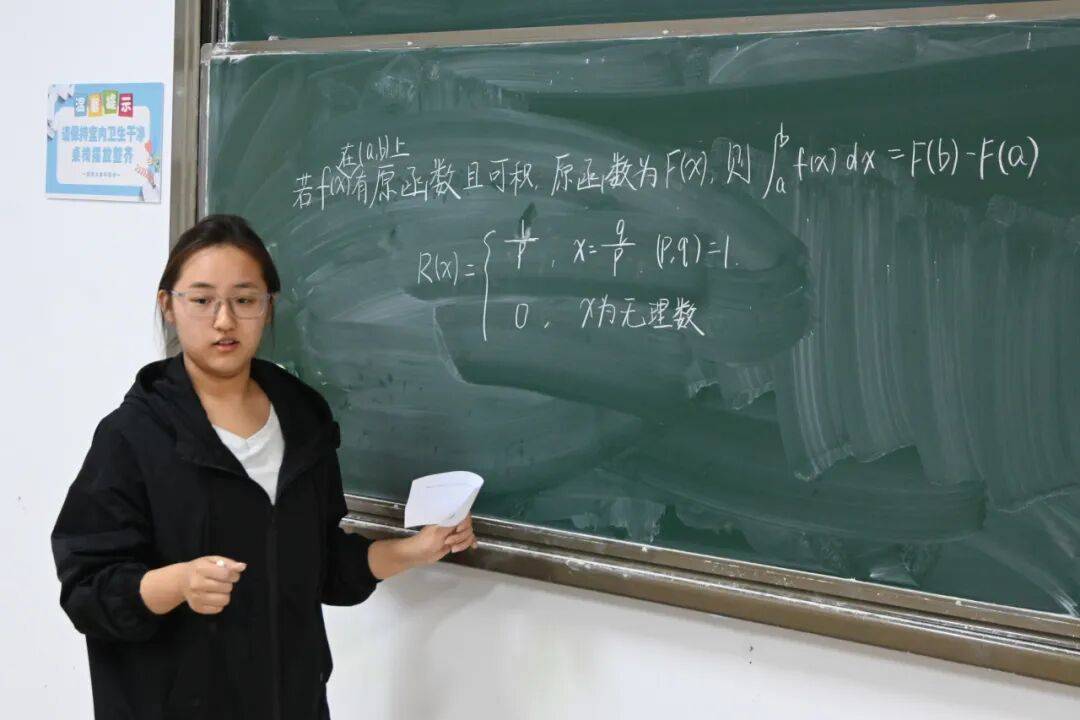 温馨提示
请保持室内卫生干净
桌椅摆放整齐
在[a,b]上
若f(x)有原函数且可积,原函数为F(x),则∫_a^b f(x)dx=F(b)-F(a)
R(x)={ 1/p, x=q/p (p,q)=1.
0, x为无理数